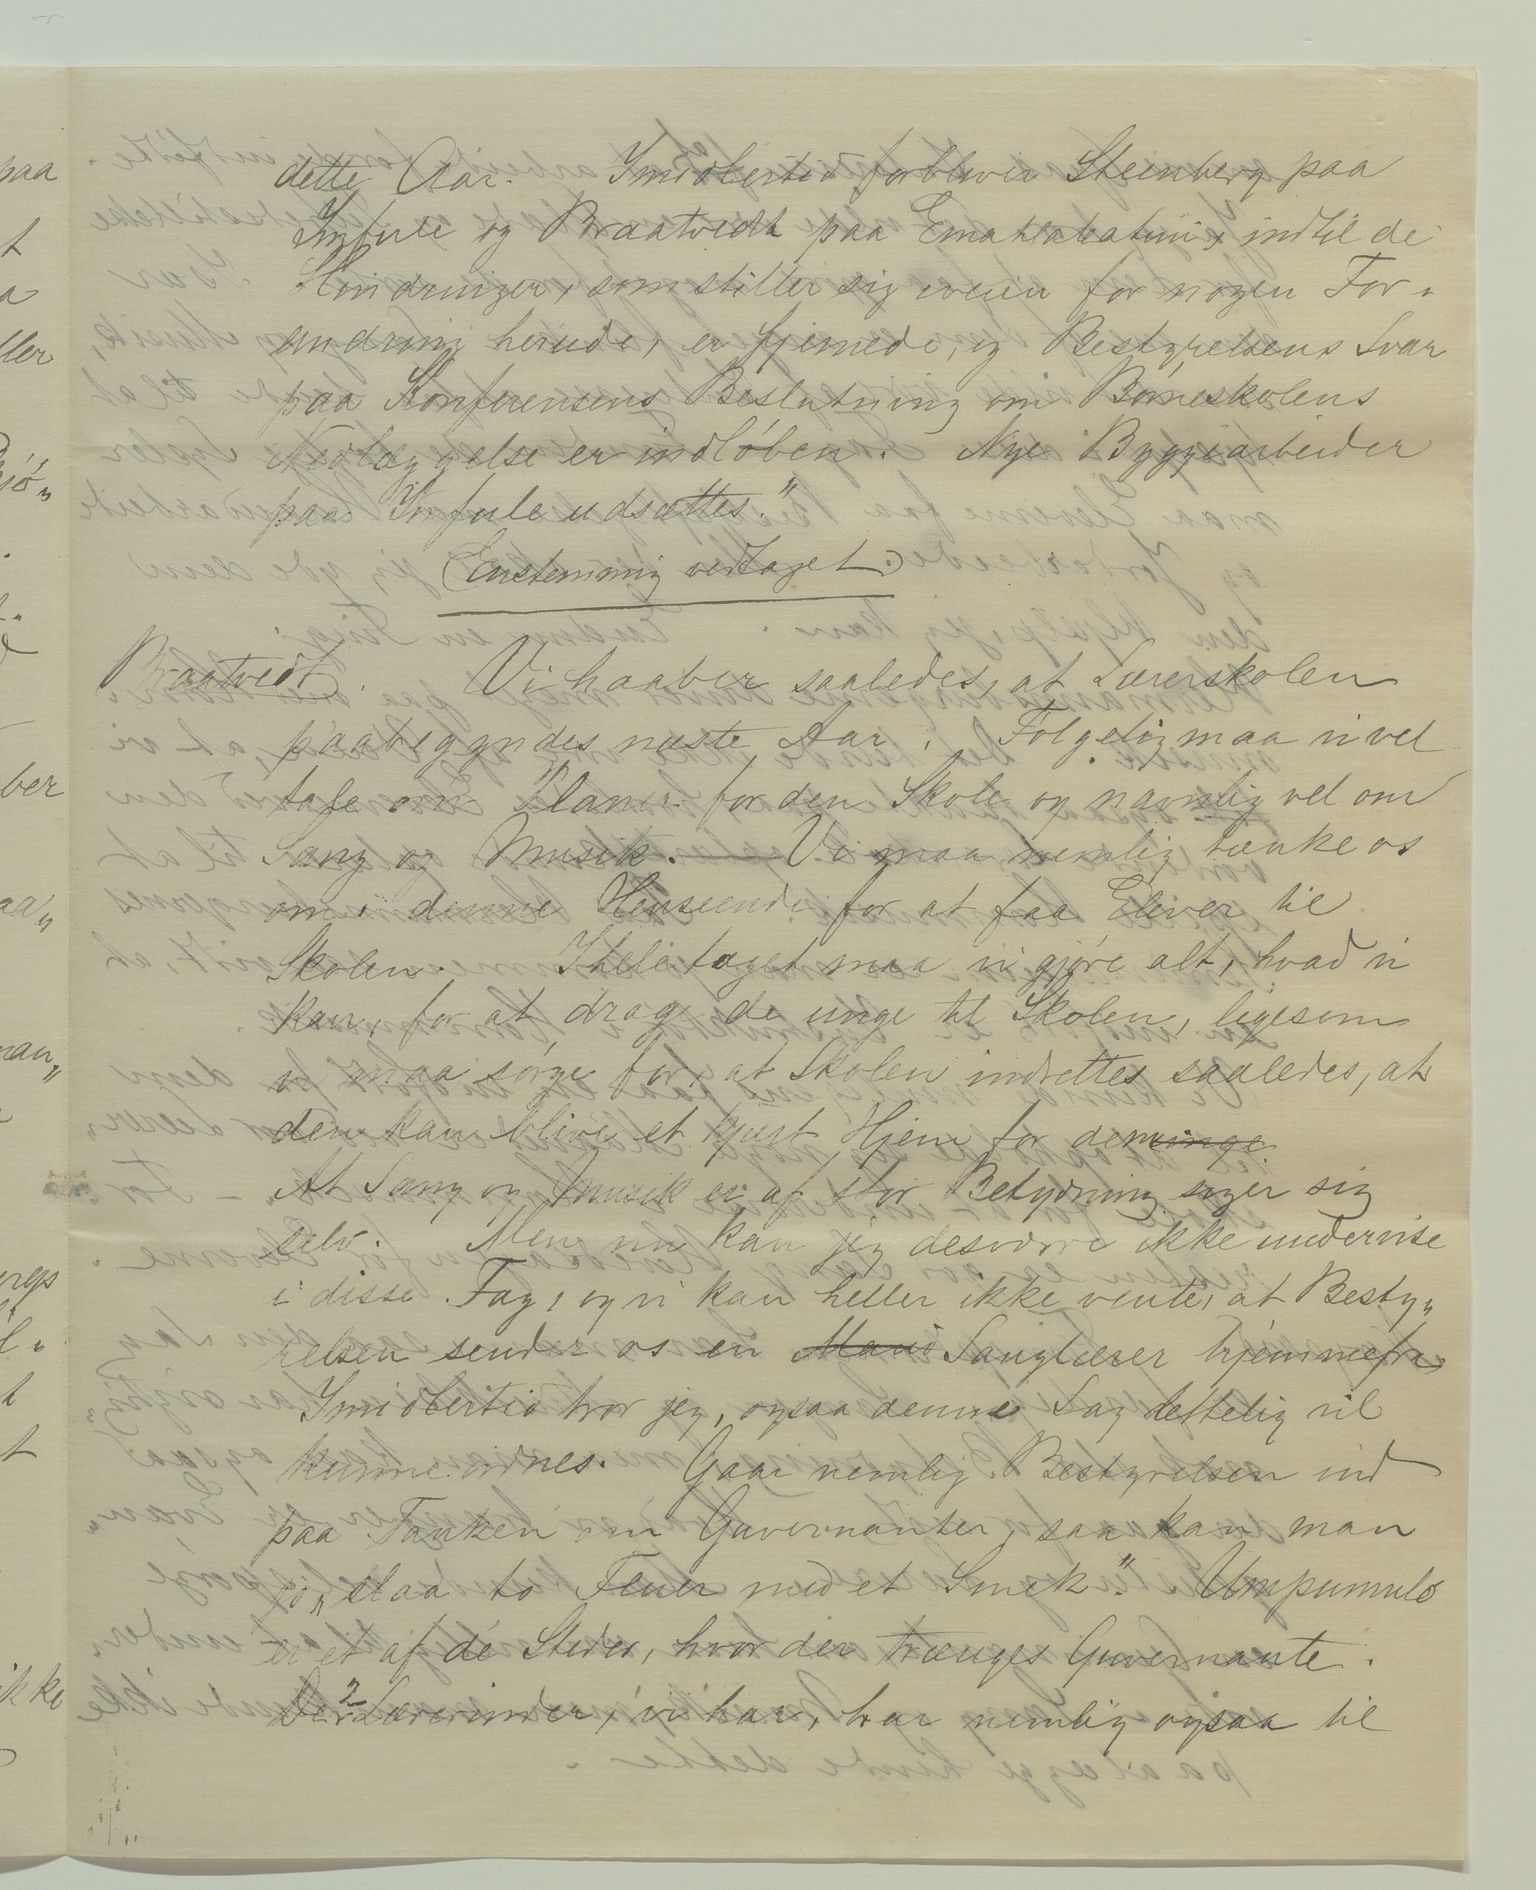 dette Aar. Imidlertid forbliver Steenberg paa
Imfule og Braatvedt paa Emahlabatini, indtil de
Hindringer, som stiller sig iveien for nogen For-
andring herude, er fjernede, og Bestyrelsens Svar
paa Konferensens Beslutning om Børneskolens
Nedlæggelse er indløben. Nye Byggearbeider
paa Imfule udsættes."
(Enstemmig vedtaget.)
Braatvedt. Vi haaber saaledes, at Lærerskolen
paabegyndes næste Aar. Følgelig maa vi vel
tale om Planer for den Skole og navnlig vel om
Sang og Musik. Vi maa nemlig tænke os
om i denne Henseende for at faa Elever til
Skolen. Ideletaget maa vi gjøre alt, hvad vi
kan, for at drage de unge til Skolen, ligesom
vi maa sørge for, at Skolen indrettes saaledes, at
den kan blive et kjært Hjem for dem unge
At Sang og Musik er af stor Betydning siger sig
selv. Men nu kan jeg desværre ikke undervise
i disse Fag, og vi kan heller ikke vente, at Besty„
relsen sender os en Mand Sanglærer hjemmefra.
Imidlertid tror jeg, ogsaa denne Sag lettelig vil
kunne ordnes. Gaar nemlig Bestyrelsen ind
paa Tanken om Guvernanter, saa kan man
jo „slaa to Fluer med et Smek". Umpumulo
er et af de Steder, hvor der trænges Guvernante.
De 2 Lærerinder, vi har, har nemlig ogsaa til